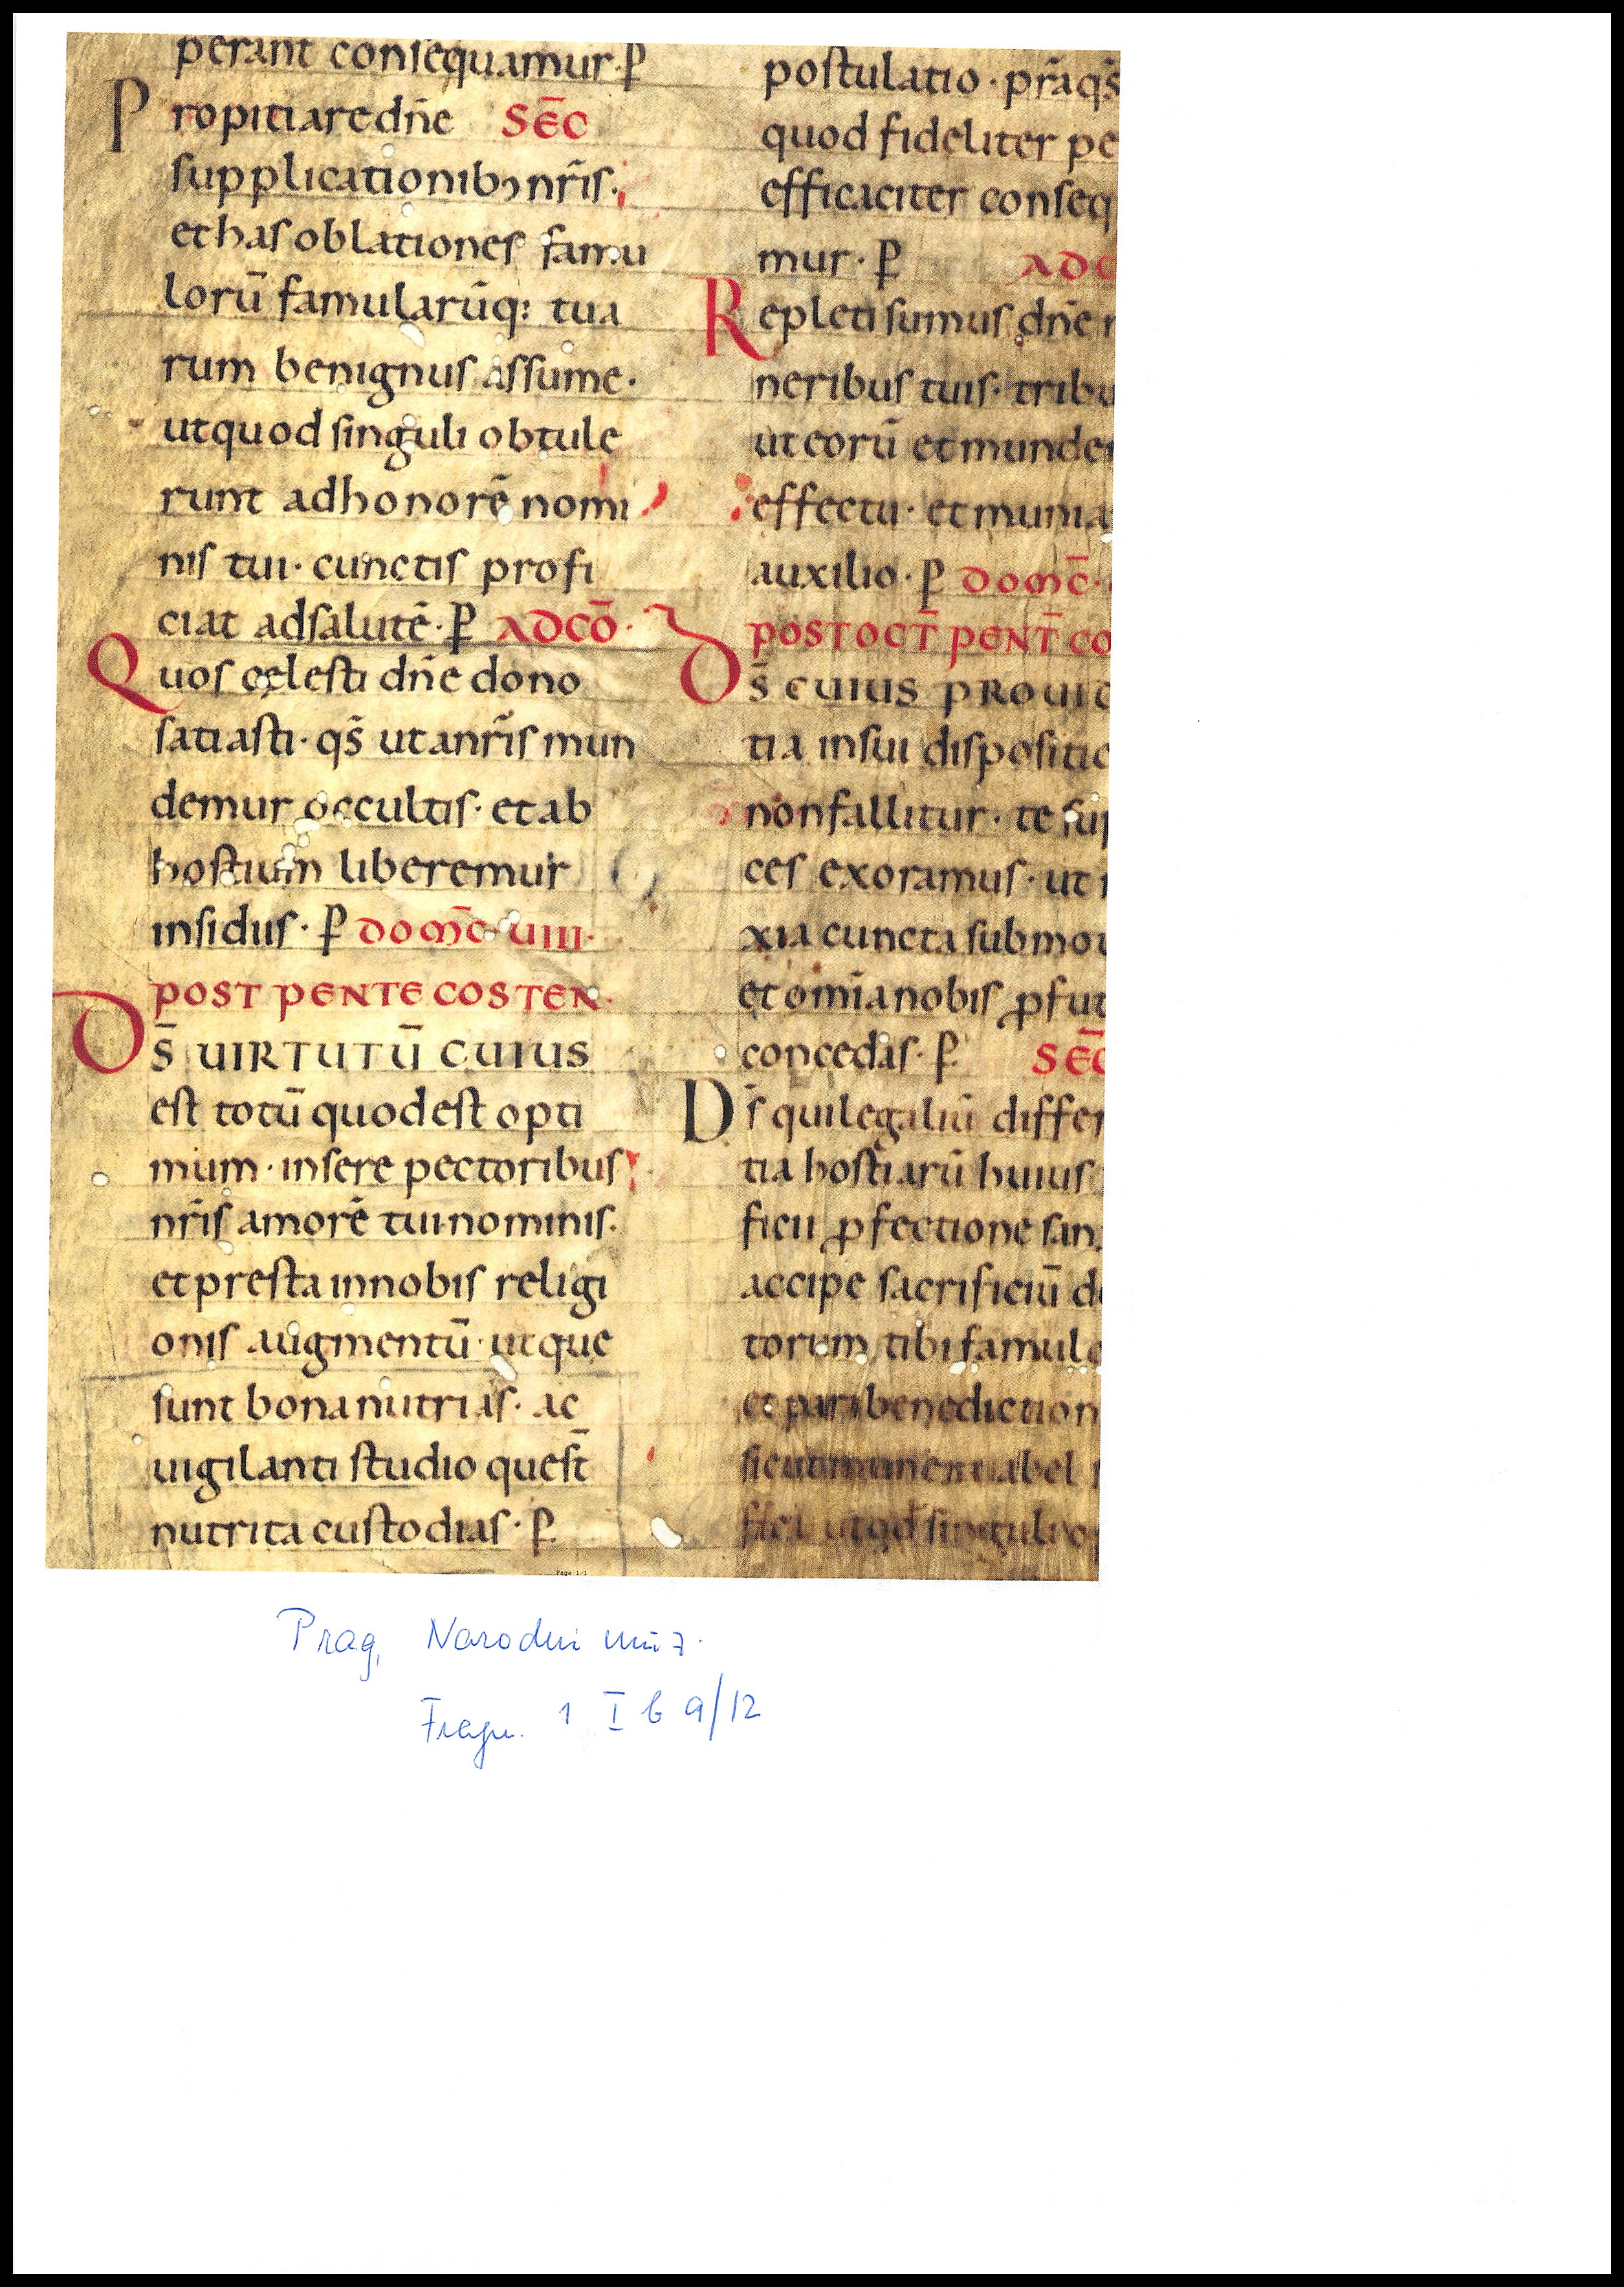 perant consequamur· ꝑ
Propitiare dn̄e SEC̄
supplicationibꝫ nr̄is·
et has oblationes famu
lorū famularūq: tua
rum benignus assume·
ut quod singuli obtule
runt ad honorē nomi
nis tui· cunctis profi
ciat ad salutē· ꝑ AD CŌ·
Quos cęlesti dn̄e dono
satiasti· qs̄ ut a nr̄is mun
demur occultis· et ab
hostium liberemur
insidiis· ꝑ DOM̄C UIII·
POST PENTECOSTEN·
DS̄ UIRTUTŪ CUIUS
est totū quod est opti
mum· insere pectoribus
nr̄is amorē tui nominis·
et presta in nobis religi
onis augmentū· ut que
sunt bona nutrias· ac
uigilanti studio que st̄
nutrita custodias· ꝑ
postulatio· pr̄a qs̄
quod fideliter pe
efficaciter conseq
mur· ꝑ AD C
Repleti sumus dn̄e
neribus tuis· tribu
ut eorū et munde
effectu· et munia
auxilio· ꝑ DOM̄C·
POST OCT̄ PENT̄ CO
DS̄ CUIUS PROUID
tia in sui dispositio
non fallitur· te sup
ces exoramus· ut
xia cuncta submou
et om̄ia nobis ꝓfut
concedas· ꝑ SEC̄
Ds̄ qui legaliū differ
tia hostiarū huius
ficii ꝑfectione san
accipe sacrificiū de
torum tibi famulo
et pari benediction
sicut munera abel
fica ut qd̄ singuli o
Page 1/1
Prag, Narodni muz.
Fragm. 1 I b 9/12